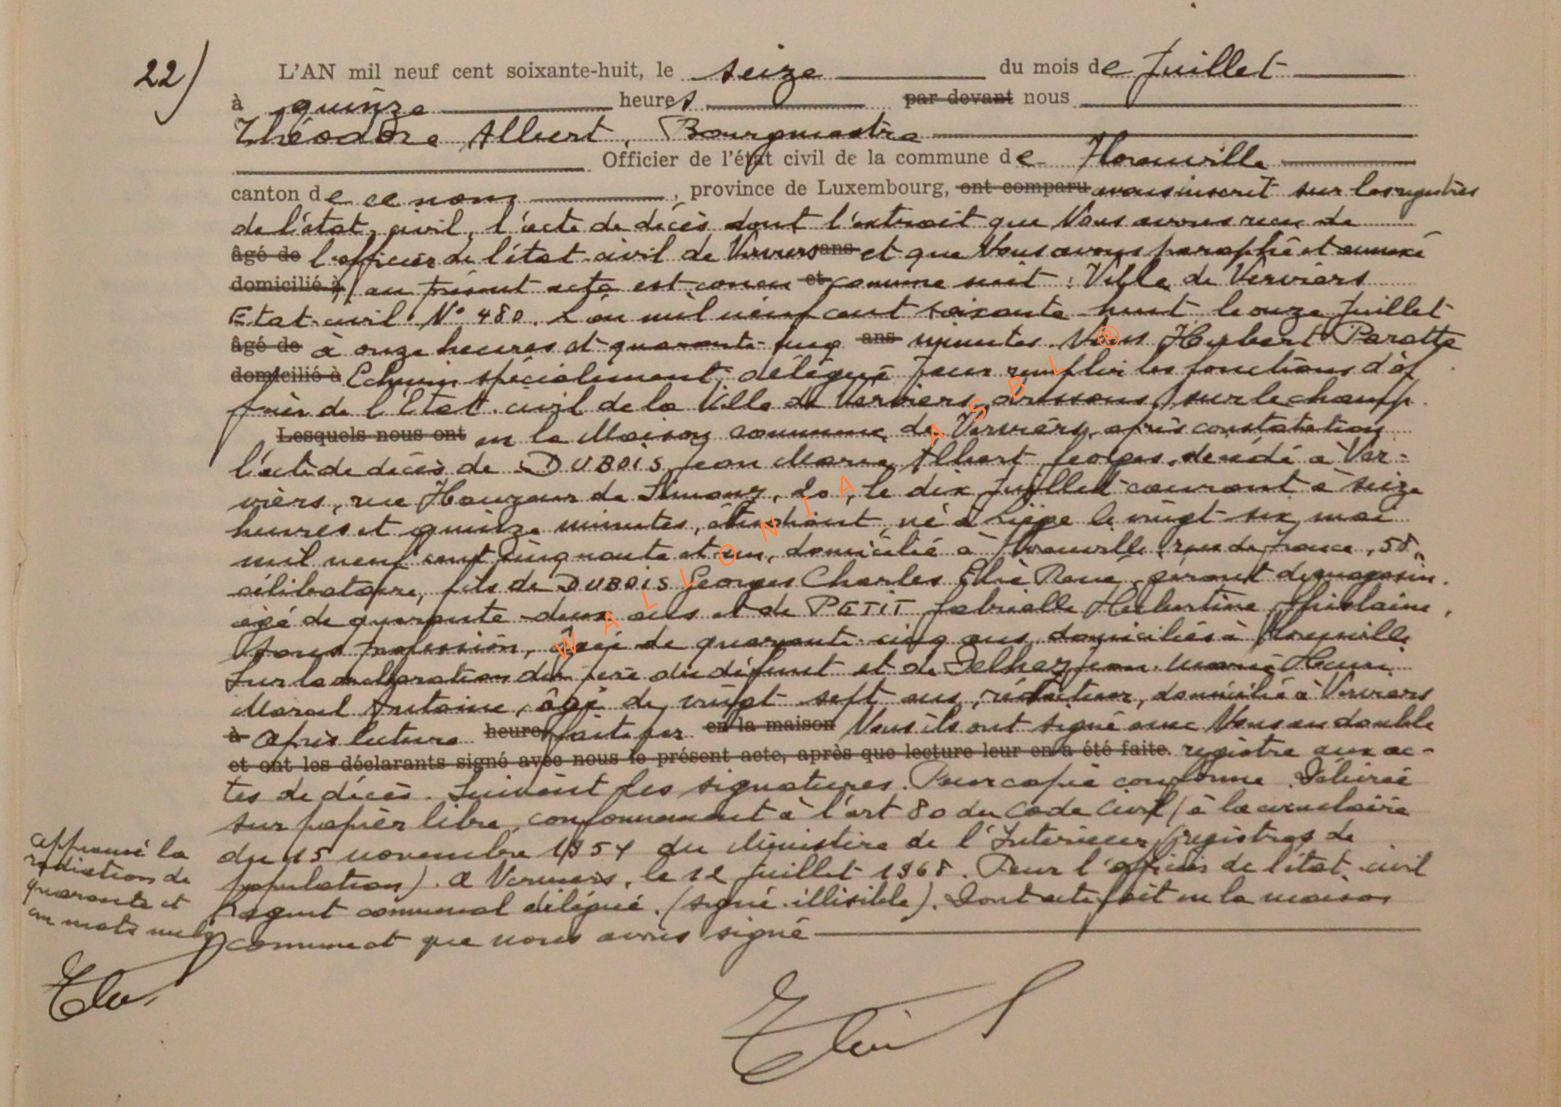 22)
L'AN mil neuf cent soixante-huit, le seize du mois de Juillet
à quinze heures par devant nous
Théodore Albert, Bourgmestre
Officier de l'état civil de la commune de Honville
canton de ce nom, province de Luxembourg, ont comparu avons inscrit sur les registres
de l'état civil, l'acte de décès dont l'extrait que Nous avons reçu de
âgé de l'officier de l'état civil de Verviers ans et que Nous avons paraphé et annexé
domicilié à au présent acte est conçu et comme suit : Ville de Verviers
Etat-civil N° 480. L'an mil neuf cent soixante huit le onze Juillet
âgé de à onze heures et quarante-cinq ans minutes. Nous Hubert Parotte
domicilié à Echevin spécialement délégué pour remplir les fonctions d'of
ficier de l'Etat-civil de la Ville de Verviers, dressons, sur le champ
Lesquels nous ont en la Maison communale de Verviers, après constatation
l'acte de décès de DUBOIS Jean Marie Albert Georges, décédé à Ver-
viers, rue Houzeur de Simony, 20, le dix Juillet courant à seize
heures et quinze minutes, étudiant, né à le vingt six mai
mil neuf cent cinquante et un, domicilié à rue de France, 58,
célibataire, fils de DUBOIS Georges Charles Elie René, gérant de magasin
âgé de quarante-deux ans et de PETIT Gabrielle Hubertine Ghislaine,
sans profession, âgée de quarante-cinq ans, domiciliés à
Sur la déclaration du père du défunt et de Delhez Jean Marie Henri
Marcel Antoine, âgé de vingt-sept ans, rédacteur, domicilié à Verviers
à Après lecture heures faite par en la maison Nous ils ont signé avec Nous au double
et ont les déclarants signé avec nous le présent acte, après que lecture leur en a été faite. registre aux ac-
tes de décès. Suivent les signatures. Pour copie conforme. Délivrée
sur papier libre, conformément à l'art 80 du Code Civil / à la circulaire
du 15 novembre 1954 du Ministère de l'Intérieur (registres de
population). A Verviers, le 12 Juillet 1968. Pour l'officier de l'état-civil
l'agent communal délégué. (signé illisible). Dont acte fait en la maison
communale et que nous avons signé
Approuvé la
radiation de
quarante et
un mots nuls
WALLONIA ASBL ®